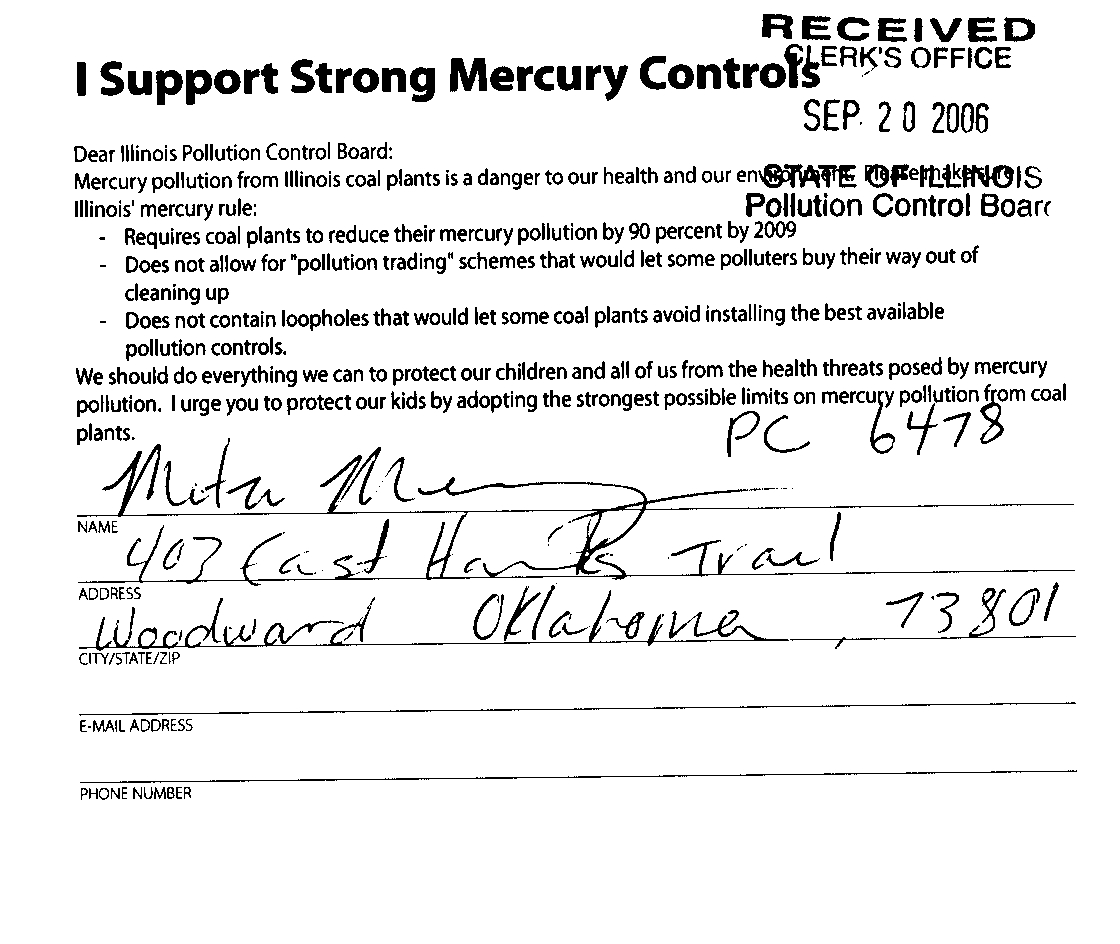 RECEIVED
CLERK'S OFFICE
I Support Strong Mercury Controls
SEP 20 2006
Dear Illinois Pollution Control Board:
Mercury pollution from Illinois coal plants is a danger to our health and our environment. Please make sure
STATE OF ILLINOIS
Illinois' mercury rule:
Pollution Control Board
- Requires coal plants to reduce their mercury pollution by 90 percent by 2009
- Does not allow for "pollution trading" schemes that would let some polluters buy their way out of
cleaning up
- Does not contain loopholes that would let some coal plants avoid installing the best available
pollution controls.
We should do everything we can to protect our children and all of us from the health threats posed by mercury
pollution. I urge you to protect our kids by adopting the strongest possible limits on mercury pollution from coal
plants.
PC 6478
NAME
403 East Hanks Trail
ADDRESS
Woodward Oklahoma, 73801
CITY/STATE/ZIP
E-MAIL ADDRESS
PHONE NUMBER